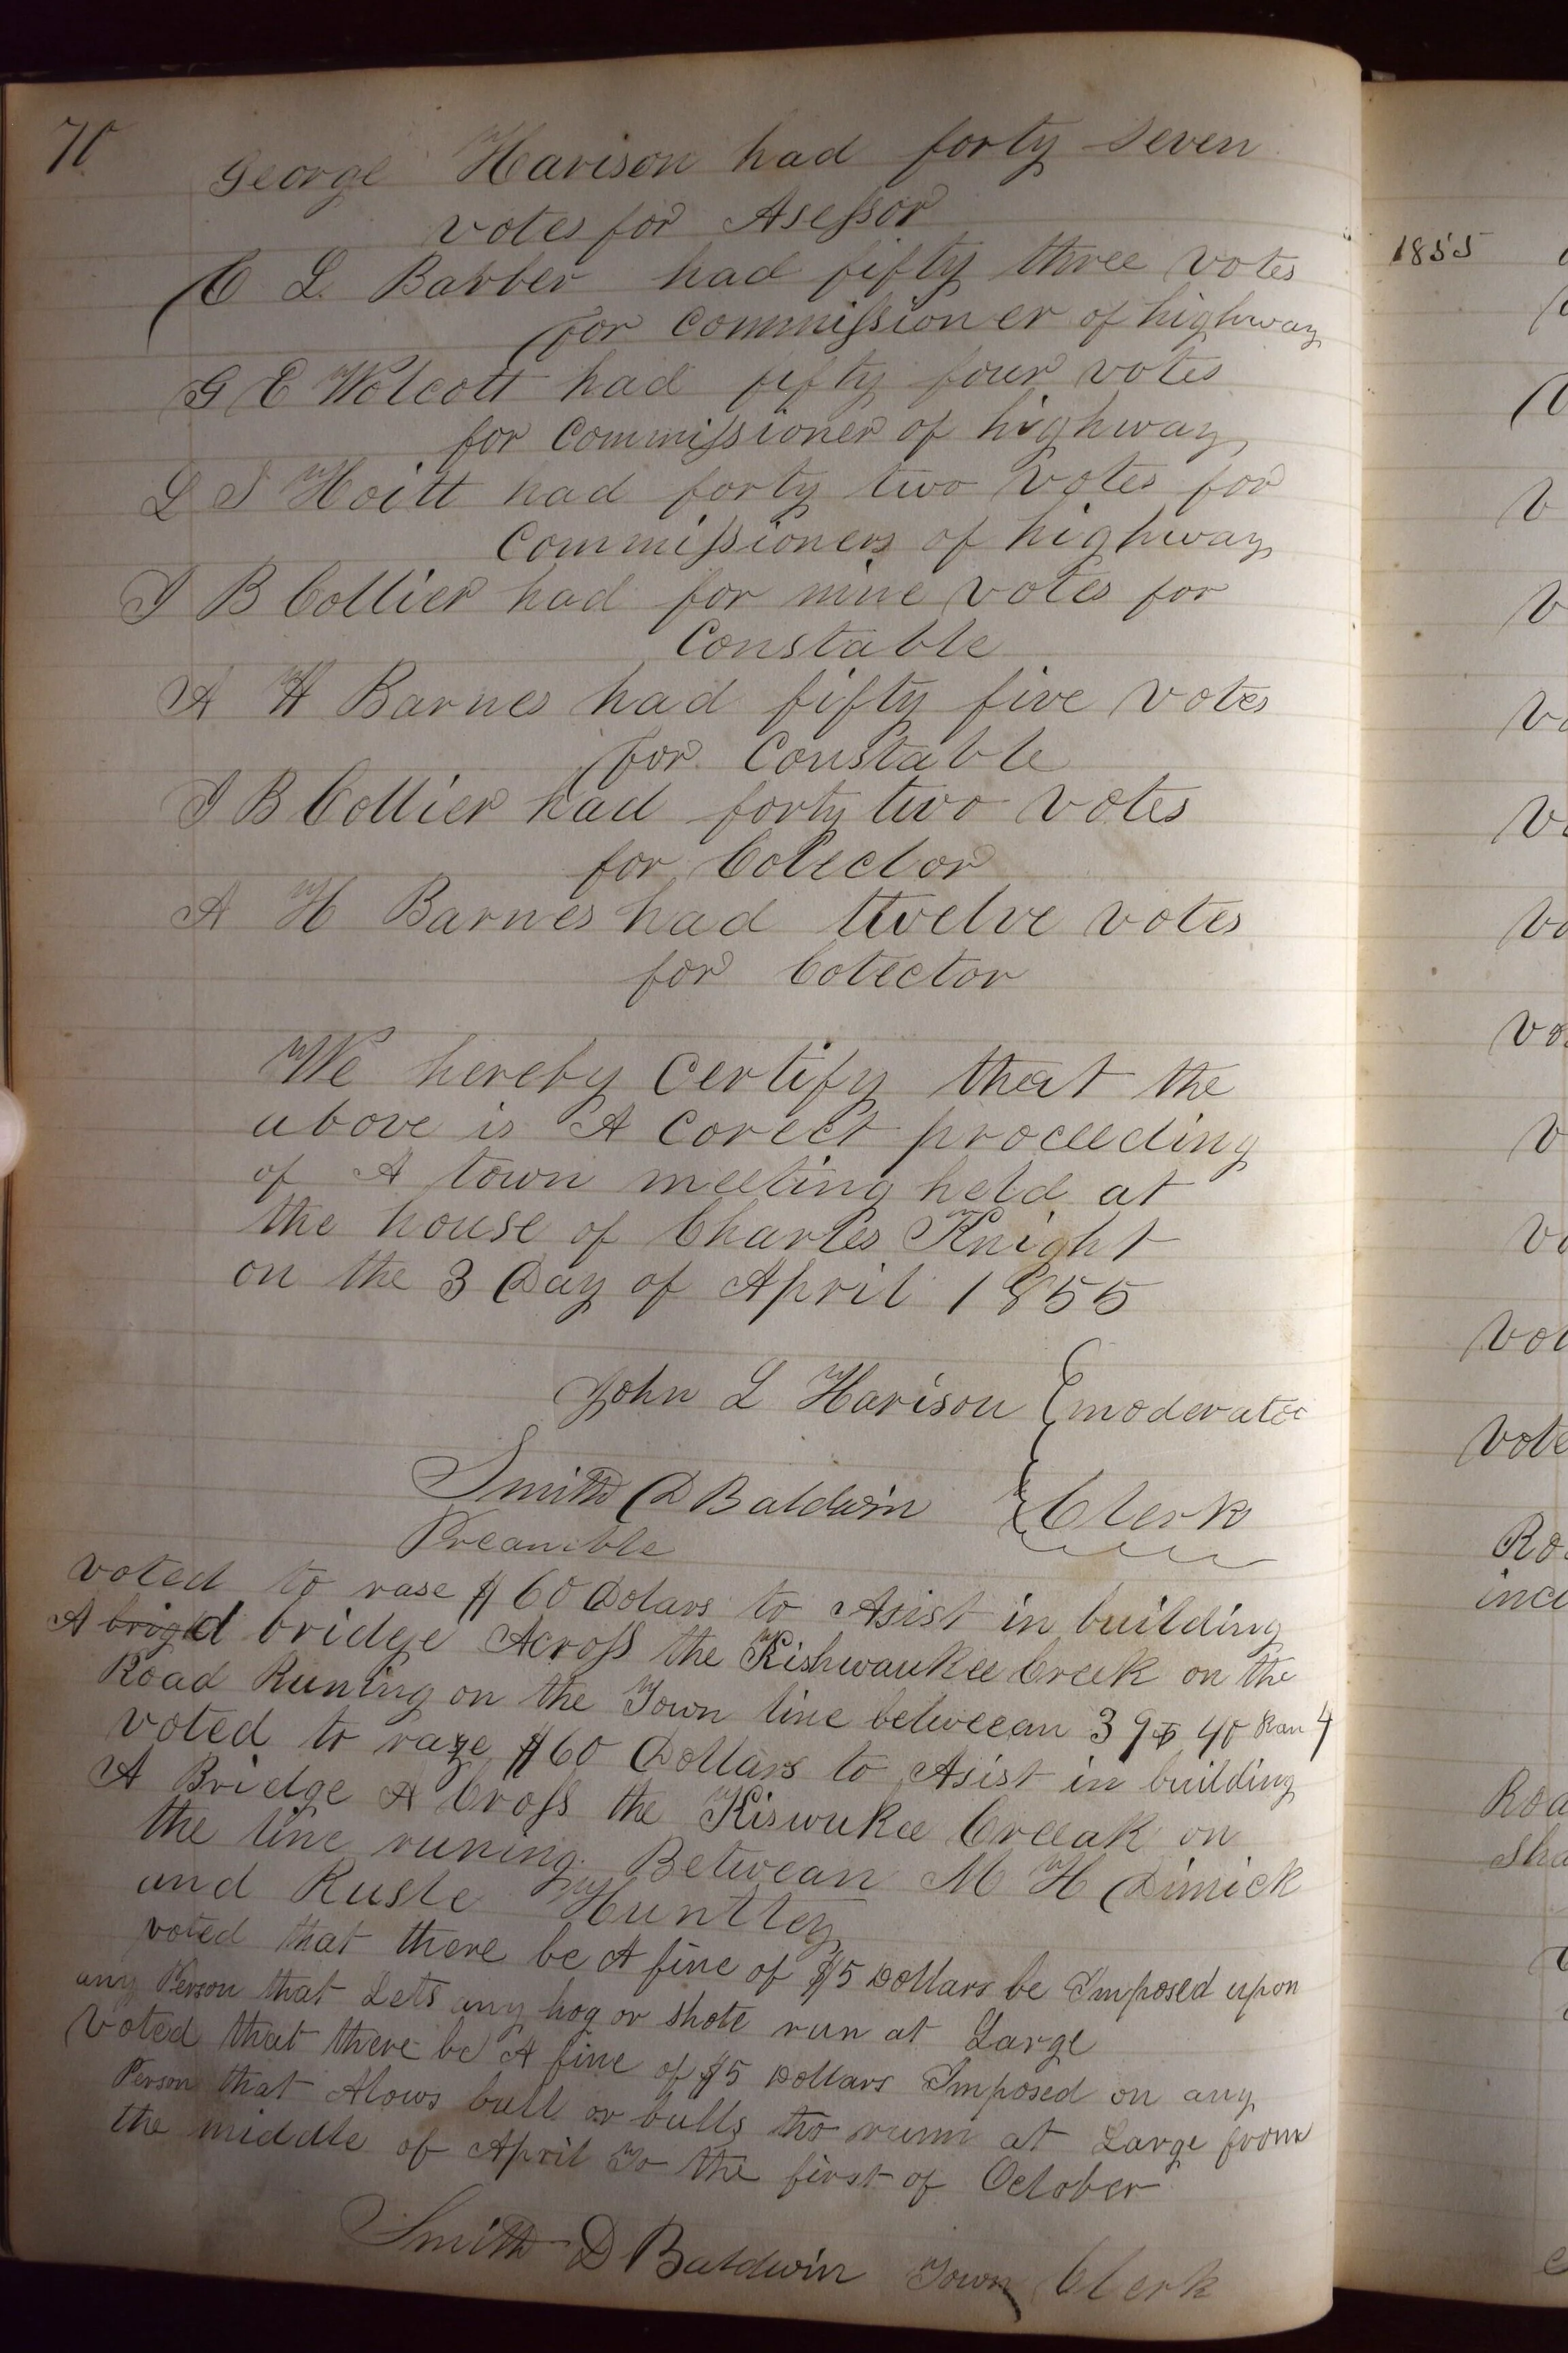 70
George Harison had forty seven
votes for Asessor
E L Barber had fifty three votes
for commissioner of highway
G E Wolcott had fifty four votes
for commissioner of highway
L S Hoitt had forty two votes for
Commissioners of highway
I B Collier had for nine votes for
Constable
A H Barnes had fifty five votes
for Constable
I B Collier had forty two votes
for Colector
A H Barnes had twelve votes
for Colector
We hereby certify that the
above is A corect proceeding
of A town meeting held at
the house of Charles Knight
on the 3 Day of April 1855
John L Harison moderator
Smith D Baldwin Clerk
Preamble
voted to rase $60 Dolars to Asist in building
A brigd bridge Across the Kishwaukee Creek on the
Road Runing on the Town line betweean 39 & 40 Ran 4
voted to raze $60 Dollars to Asist in building
A Bridge A Cross the Kiswukee Creeak on
the line runing Betwean M H Dimick
and Rusle Huntley
voted that there be A fine of $5 Dollars be Imposed upon
any Person that Lets any hog or shote run at Large
Voted that there be A fine of $5 Dollars Imposed on any
Person that Alows bull or bulls tho runn at Large from
the middle of April To the first of October
Smith D Baldwin Town Clerk
1855